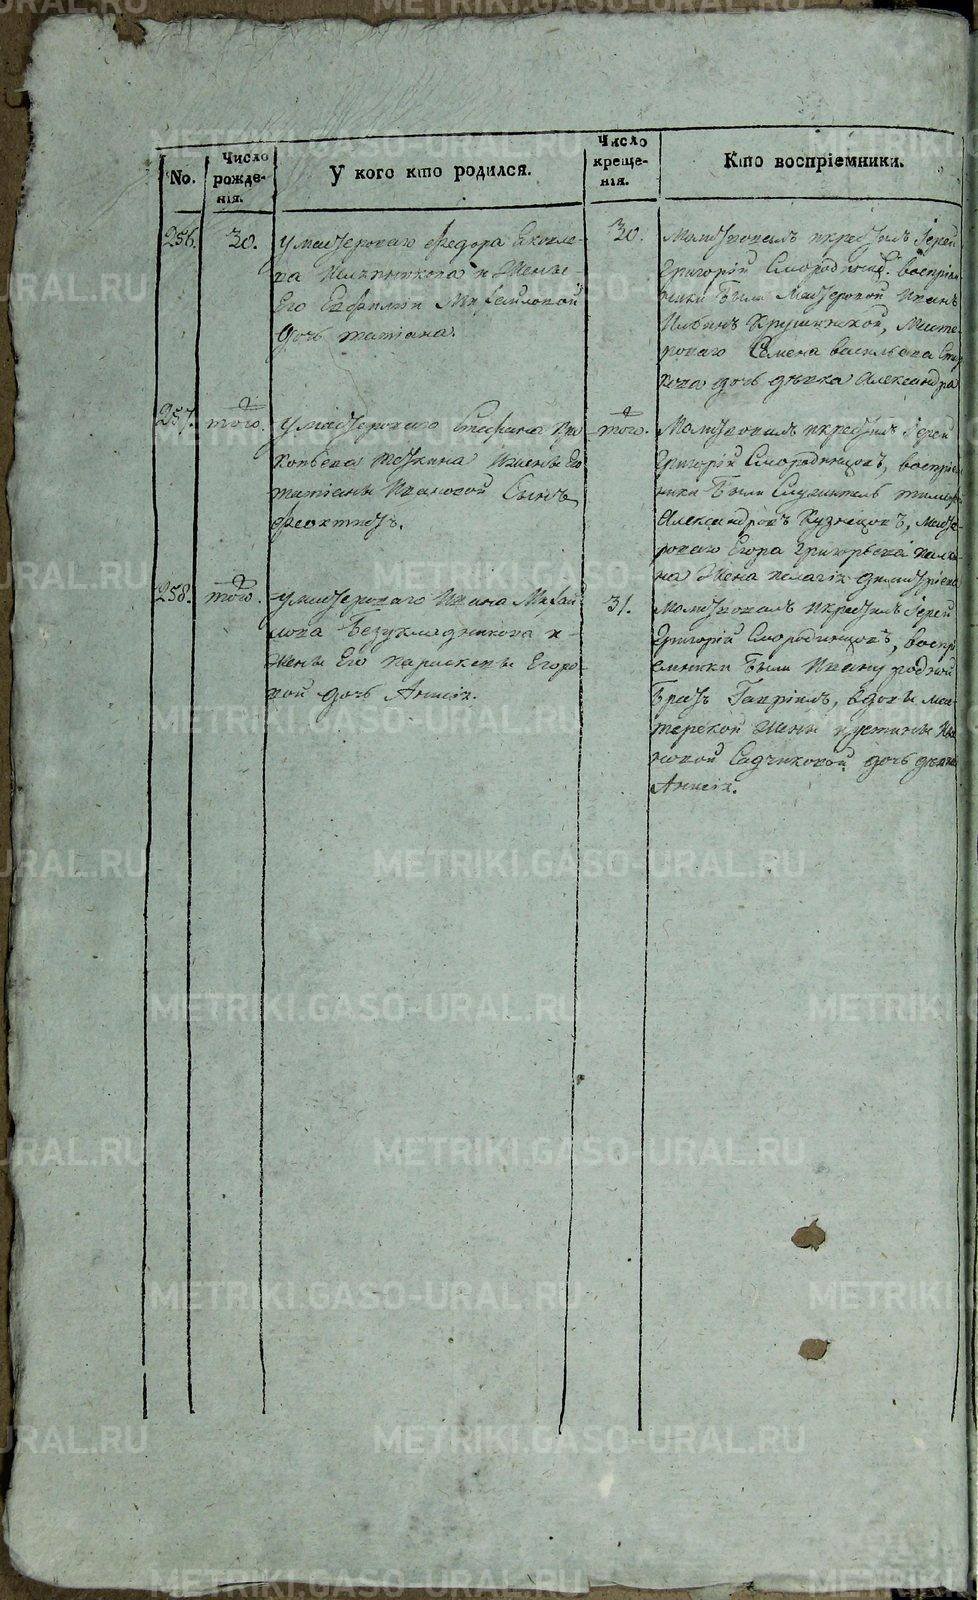 No.
Число рожде-нія.
У кого кто родился.
Число креще-нія.
Кто воспріемники.
256.
30.
у мастероваго Федора Яковле-
ва и жены
Его Евфиміи Михайловой
дочь татіана.
30.
Молитвовалъ и крестилъ Іерей
Григорій Смородинцов. воспріем
ники были Мастеровой Иванъ
Ильинъ, Масте-
роваго Семена васильева
дочь дѣвка Александра
257.
того.
у мастероваго Стефана Про
копьева и жены Его
татіаны Ивановой Сынъ
феоктистъ.
того.
Молитвовалъ и крестилъ Іерей
Григорій Смородинцовъ, воспріем
ники были Служитель
Александровъ Кузнецовъ, Масте
роваго Егора Григорьева
на жена пелагія
258.
того.
у мастероваго Ивана Михай
лова Безукладникова и
жены Его параскевы Егоро
вой дочь Анисія.
31.
Молитвовалъ и крестилъ Іерей
Григорій Смородинцовъ, воспрі
емники были Ивану родной
братъ Гавріилъ, вдовы мас
терской жены Ив
новой Садчиковой дочь дѣвка
Анисія.
METRIKI.GASO-URAL.RU